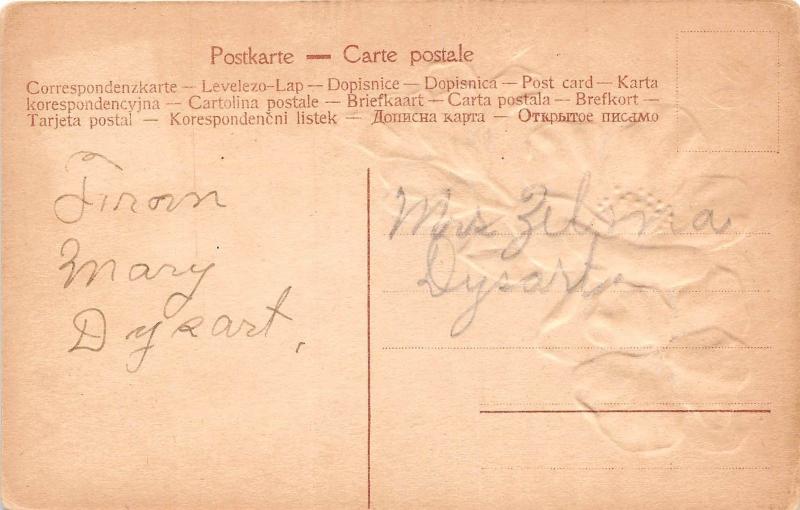 Postkarte — Carte postale
Correspondenzkarte — Levelezo-Lap — Dopisnice — Dopisnica — Post card — Karta
korespondencyjna — Cartolina postale — Briefkaart — Carta postala — Brefkort —
Tarjeta postal — Korespondenčni listek — Дописна карта — Открытое писамо
From
Mary
Dysart,
Mrs Zelma
Dysart